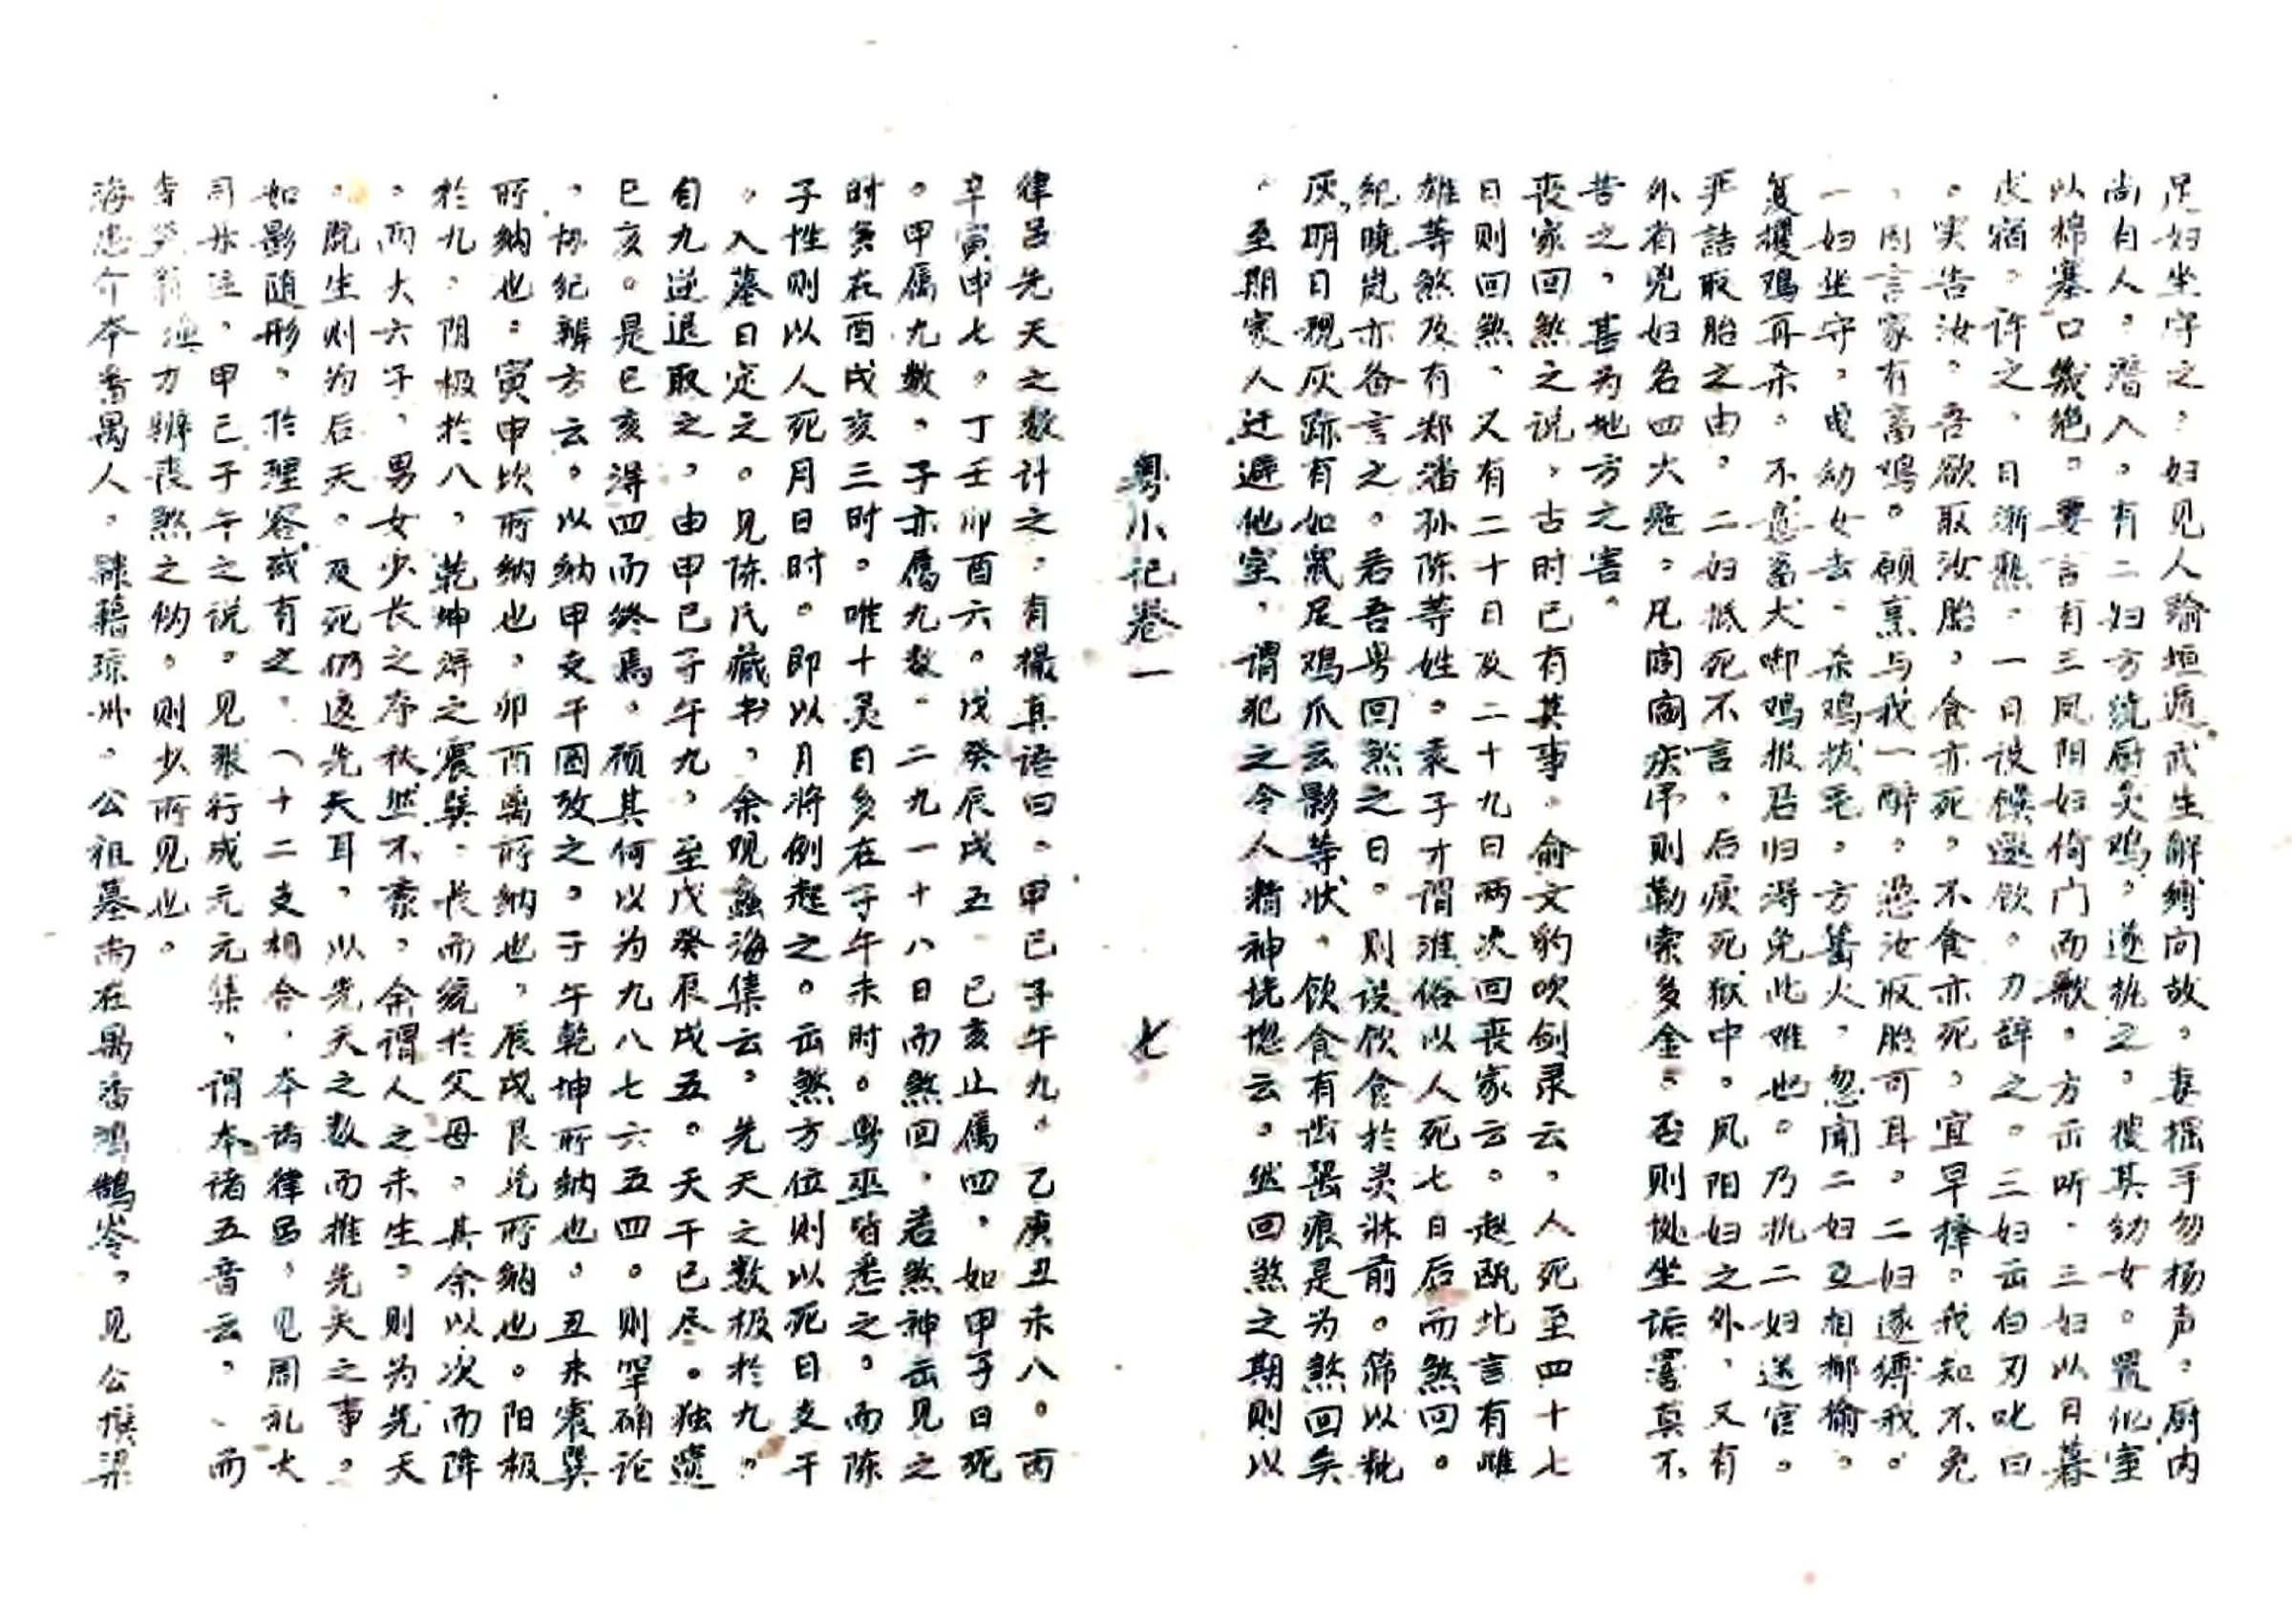 足妇坐守之，妇见人踰垣遁，武生解缚问故，妻摇手勿扬声，厨内
尚有人。潜入。有二妇方绕厨灸鸡，遂执之，搜其幼女。置他室
以棉塞口几绝。妻言有三凤阳妇倚门而歌，方出听，三妇以日暮
求宿。许之，日渐熟。一日设馔邀饮。力辞之。三妇出白刃叱曰
。实告汝，吾欲取汝胎，食亦死，不食亦死，宜早择。我知不免
，因言家有畜鸡。愿烹与我一醉。恣汝取胎可耳。二妇遂缚我。
一妇坐守，曳幼女去，杀鸡拔毛，方蓄火，忽闻二妇互相揶揄。
复攫鸡再杀。不意畜犬啣鸡报君归得免此难也。乃执二妇送官。
严诘取胎之由。二妇抵死不言，后瘐死狱中。凤阳妇之外，又有
外省儿妇名四大癍。凡闾阎庆吊则勒索多金。否则拋坐诟詈真不
苦之，甚为地方之害。
丧家回煞之说，古时已有其事，俞文豹吹剑录云，人死至四十七
日则回煞，又有二十日及二十九日两次回丧家云。赵瓯北言有雌
雄等煞及有郑潘孙陈等姓。袁子才谓淮俗以人死七日后而煞回。
纪晓岚亦备言之。若吾粤回煞之日。则设饮食于灵牀前。筛以粃
灰，明日视灰跡有如鼠尾鸡爪云影等状，饮食有齿啮痕是为煞回矣
，至期家人迁避他室，谓犯之令人精神恍惚云。然回煞之期则以
粤小记卷一
七
律吕先天之数计之，有撮真语曰，甲己子午九，乙庚丑未八。丙
辛寅申七。丁壬卯酉六。戊癸辰戌五，巳亥止属四，如甲子日死
。甲属九数，子亦属九数，二九一十八日而煞回，若煞神出见之
时多在酉戌亥三时。唯十灵日多在子午未时。粤巫皆悉之，而陈
子性则以人死月日时。即以月将例起之。出煞方位则以死日支干
。入墓日定之。见陈氏藏书，余观蠡海集云，先天之数极于九。
自九逆退取之，由甲己子午九，至戊癸辰戌五。天干已尽。独遗
巳亥。是巳亥得四而终焉。顾其何以为九八七六五四。则罕确论
。协纪辨方云。以纳甲支干图攷之。子午乾坤所纳也。丑未震巽
所纳也：寅申坎所纳也，卯酉离所纳也，辰戌艮兑所纳也。阳极
于九，阴极于八，乾坤浔之震巽，长而统于父母，其余以次而降
。而大六子，男女少长之序秩然不紊。余谓人之未生，则为先天
。既生则为后天。及死仍返先天耳，以先天之数而推先天之事。
如影随形。于理容或有之，（十二支相合，本诸律吕，见周礼大
司乐注，甲己子午之说。见张行成元元集，谓本诸五音云，、而
力辨丧煞之伪。则少所见也。
海忠介本番禺人，隸籍琼州，公祖墓尚在禺番鸿鹄岺，见公旗梁